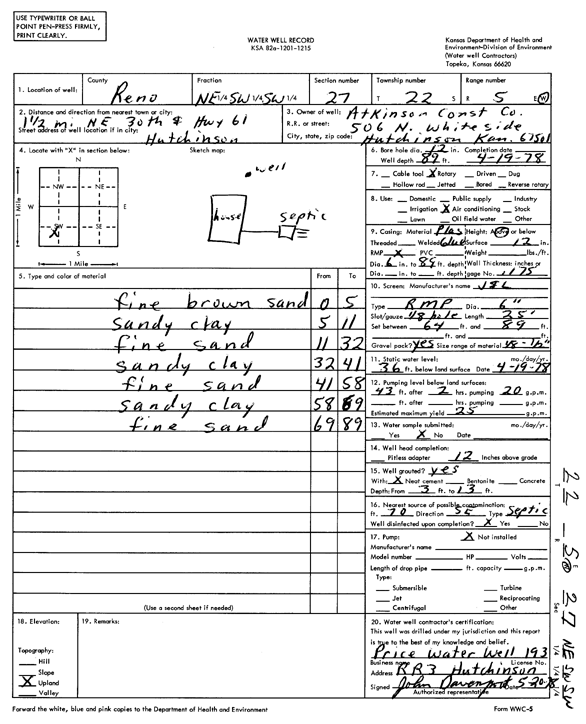 USE TYPEWRITER OR BALL
POINT PEN-PRESS FIRMLY,
PRINT CLEARLY.
WATER WELL RECORD
KSA 82a-1201-1215
Kansas Department of Health and
Environment-Division of Environment
(Water well Contractors)
Topeka, Kansas 66620
1. Location of well: County Reno Fraction NE 1/4 SW 1/4 SW 1/4 Section number 27 Township number T 22 S Range number R 5 E(W)
2. Distance and direction from nearest town or city: 1 1/2 mi. NE 30th & Hwy 61
Street address of well location if in city: Hutchinson
3. Owner of well: Atkinson Const Co.
R.R. or street: 506 N. Whiteside
City, state, zip code: Hutchinson Kan. 67501
4. Locate with "X" in section below:
N
NW NE
W E
SW SE
X
S
1 Mile
1 Mile
Sketch map:
well
house
septic
6. Bore hole dia. 12 in. Completion date
Well depth 89 ft. 4-19-78
7. Cable tool X Rotary Driven Dug
Hollow rod Jetted Bored Reverse rotary
8. Use: Domestic Public supply Industry
Irrigation X Air conditioning Stock
Lawn Oil field water Other
9. Casing: Material Plas Height: Above or below
Threaded Welded Glue Surface 12 in.
RMP X PVC Weight lbs./ft.
Dia. 6 in. to 89 ft. depth Wall Thickness: inches or
Dia. in. to ft. depth gage No.
10. Screen: Manufacturer's name
Type RMP Dia. 6"
Slot/gauze Length 25'
Set between 64 ft. and 89 ft.
ft. and ft.
Gravel pack? yes Size range of material
5. Type and color of material From To
fine brown sand 0 5
sandy clay 5 11
fine sand 11 32
sandy clay 32 41
fine sand 41 58
sandy clay 58 69
fine sand 69 89
(Use a second sheet if needed)
11. Static water level: mo./day/yr.
36 ft. below land surface Date 4-19-78
12. Pumping level below land surfaces:
43 ft. after 2 hrs. pumping 20 g.p.m.
ft. after hrs. pumping g.p.m.
Estimated maximum yield 25 g.p.m.
13. Water sample submitted: mo./day/yr.
Yes X No Date
14. Well head completion:
Pitless adapter 12 Inches above grade
15. Well grouted? yes
With: X Neat cement Bentonite Concrete
Depth: From 3 ft. to 13 ft.
16. Nearest source of possible contamination:
ft. 70 Direction SE Type Septic
Well disinfected upon completion? X Yes No
17. Pump: X Not installed
Manufacturer's name
Model number HP Volts
Length of drop pipe ft. capacity g.p.m.
Type:
Submersible Turbine
Jet Reciprocating
Centrifugal Other
18. Elevation:
Topography:
Hill
Slope
X Upland
Valley
19. Remarks:
20. Water well contractor's certification:
This well was drilled under my jurisdiction and this report
is true to the best of my knowledge and belief.
Price Water Well 193
Business name License No.
Address RR3 Hutchinson
Signed John Davenport Date 5-20-78
Authorized representative
T 22 - R 5 E(W) Sec 27 NE 1/4 SW 1/4 SW 1/4
Forward the white, blue and pink copies to the Department of Health and Environment
Form WWC-5